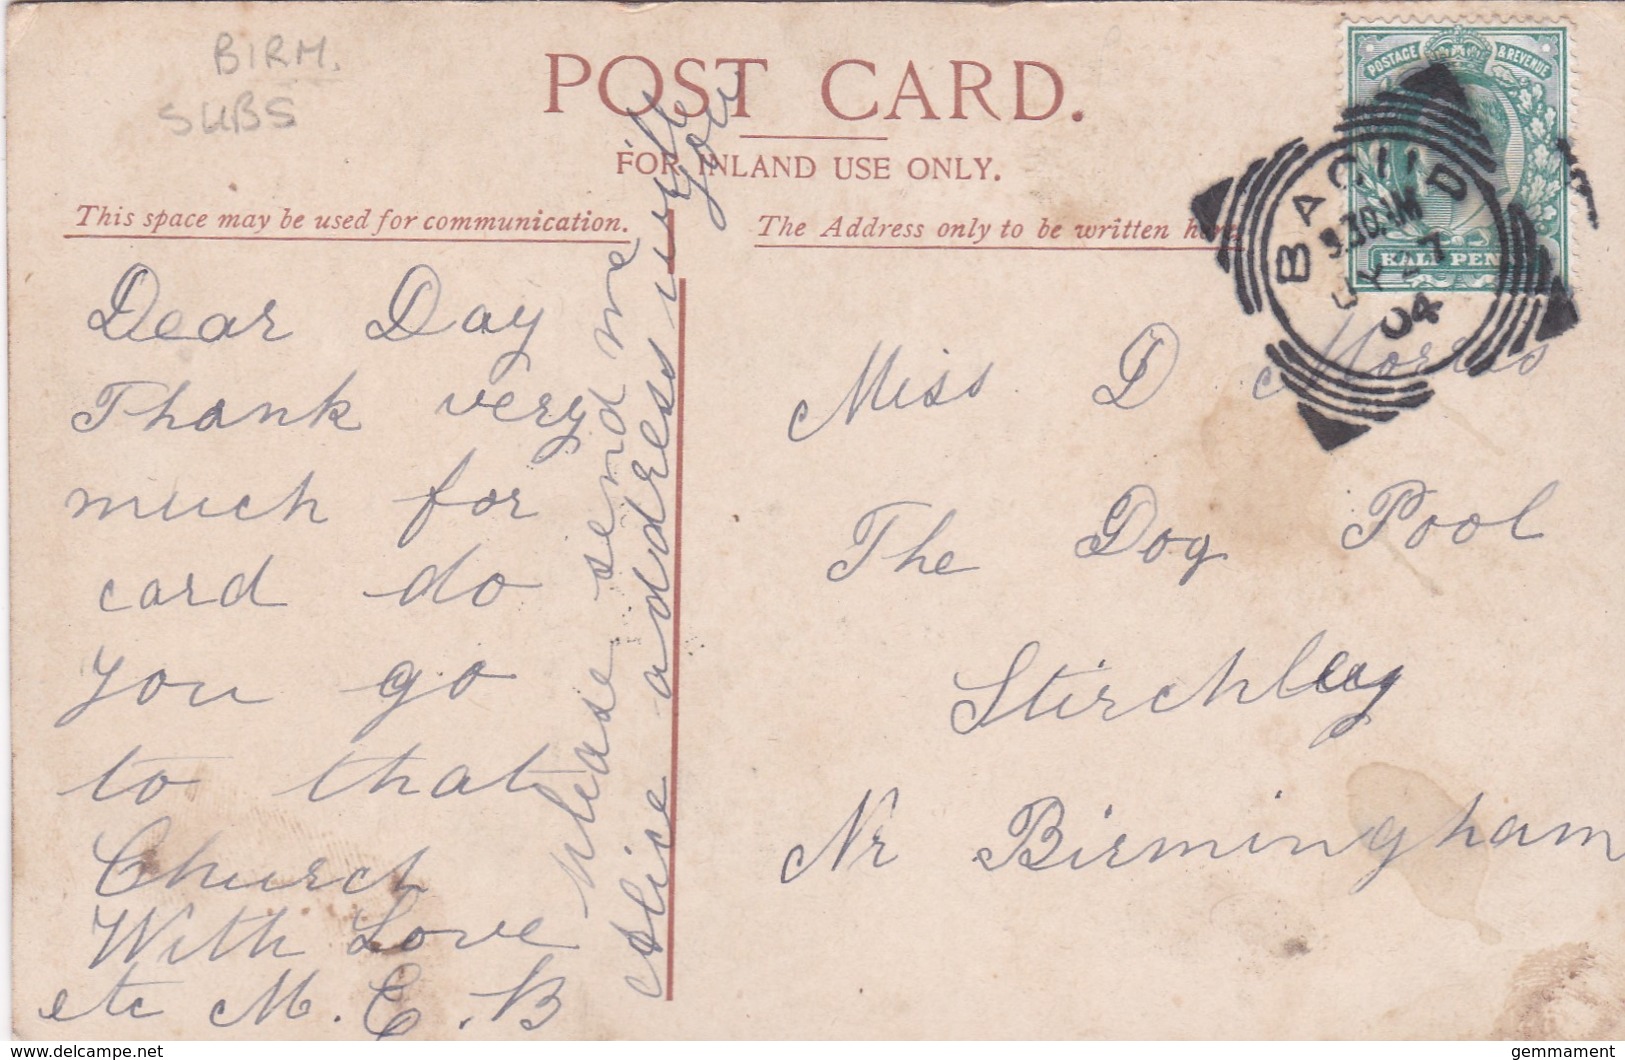 BIRM.
SUBS
POST CARD.
FOR INLAND USE ONLY.
This space may be used for communication.
The Address only to be written here.
POSTAGE & REVENUE
HALF PEN
04
Dear Day
Thank very
much for
card do
you go
to that
Church
With Love
etc M. C. B
please send me
Alice address will
you
Miss D Morris
The Dog Pool
Stirchley
Nr Birmingham
www.delcampe.net
gemmament